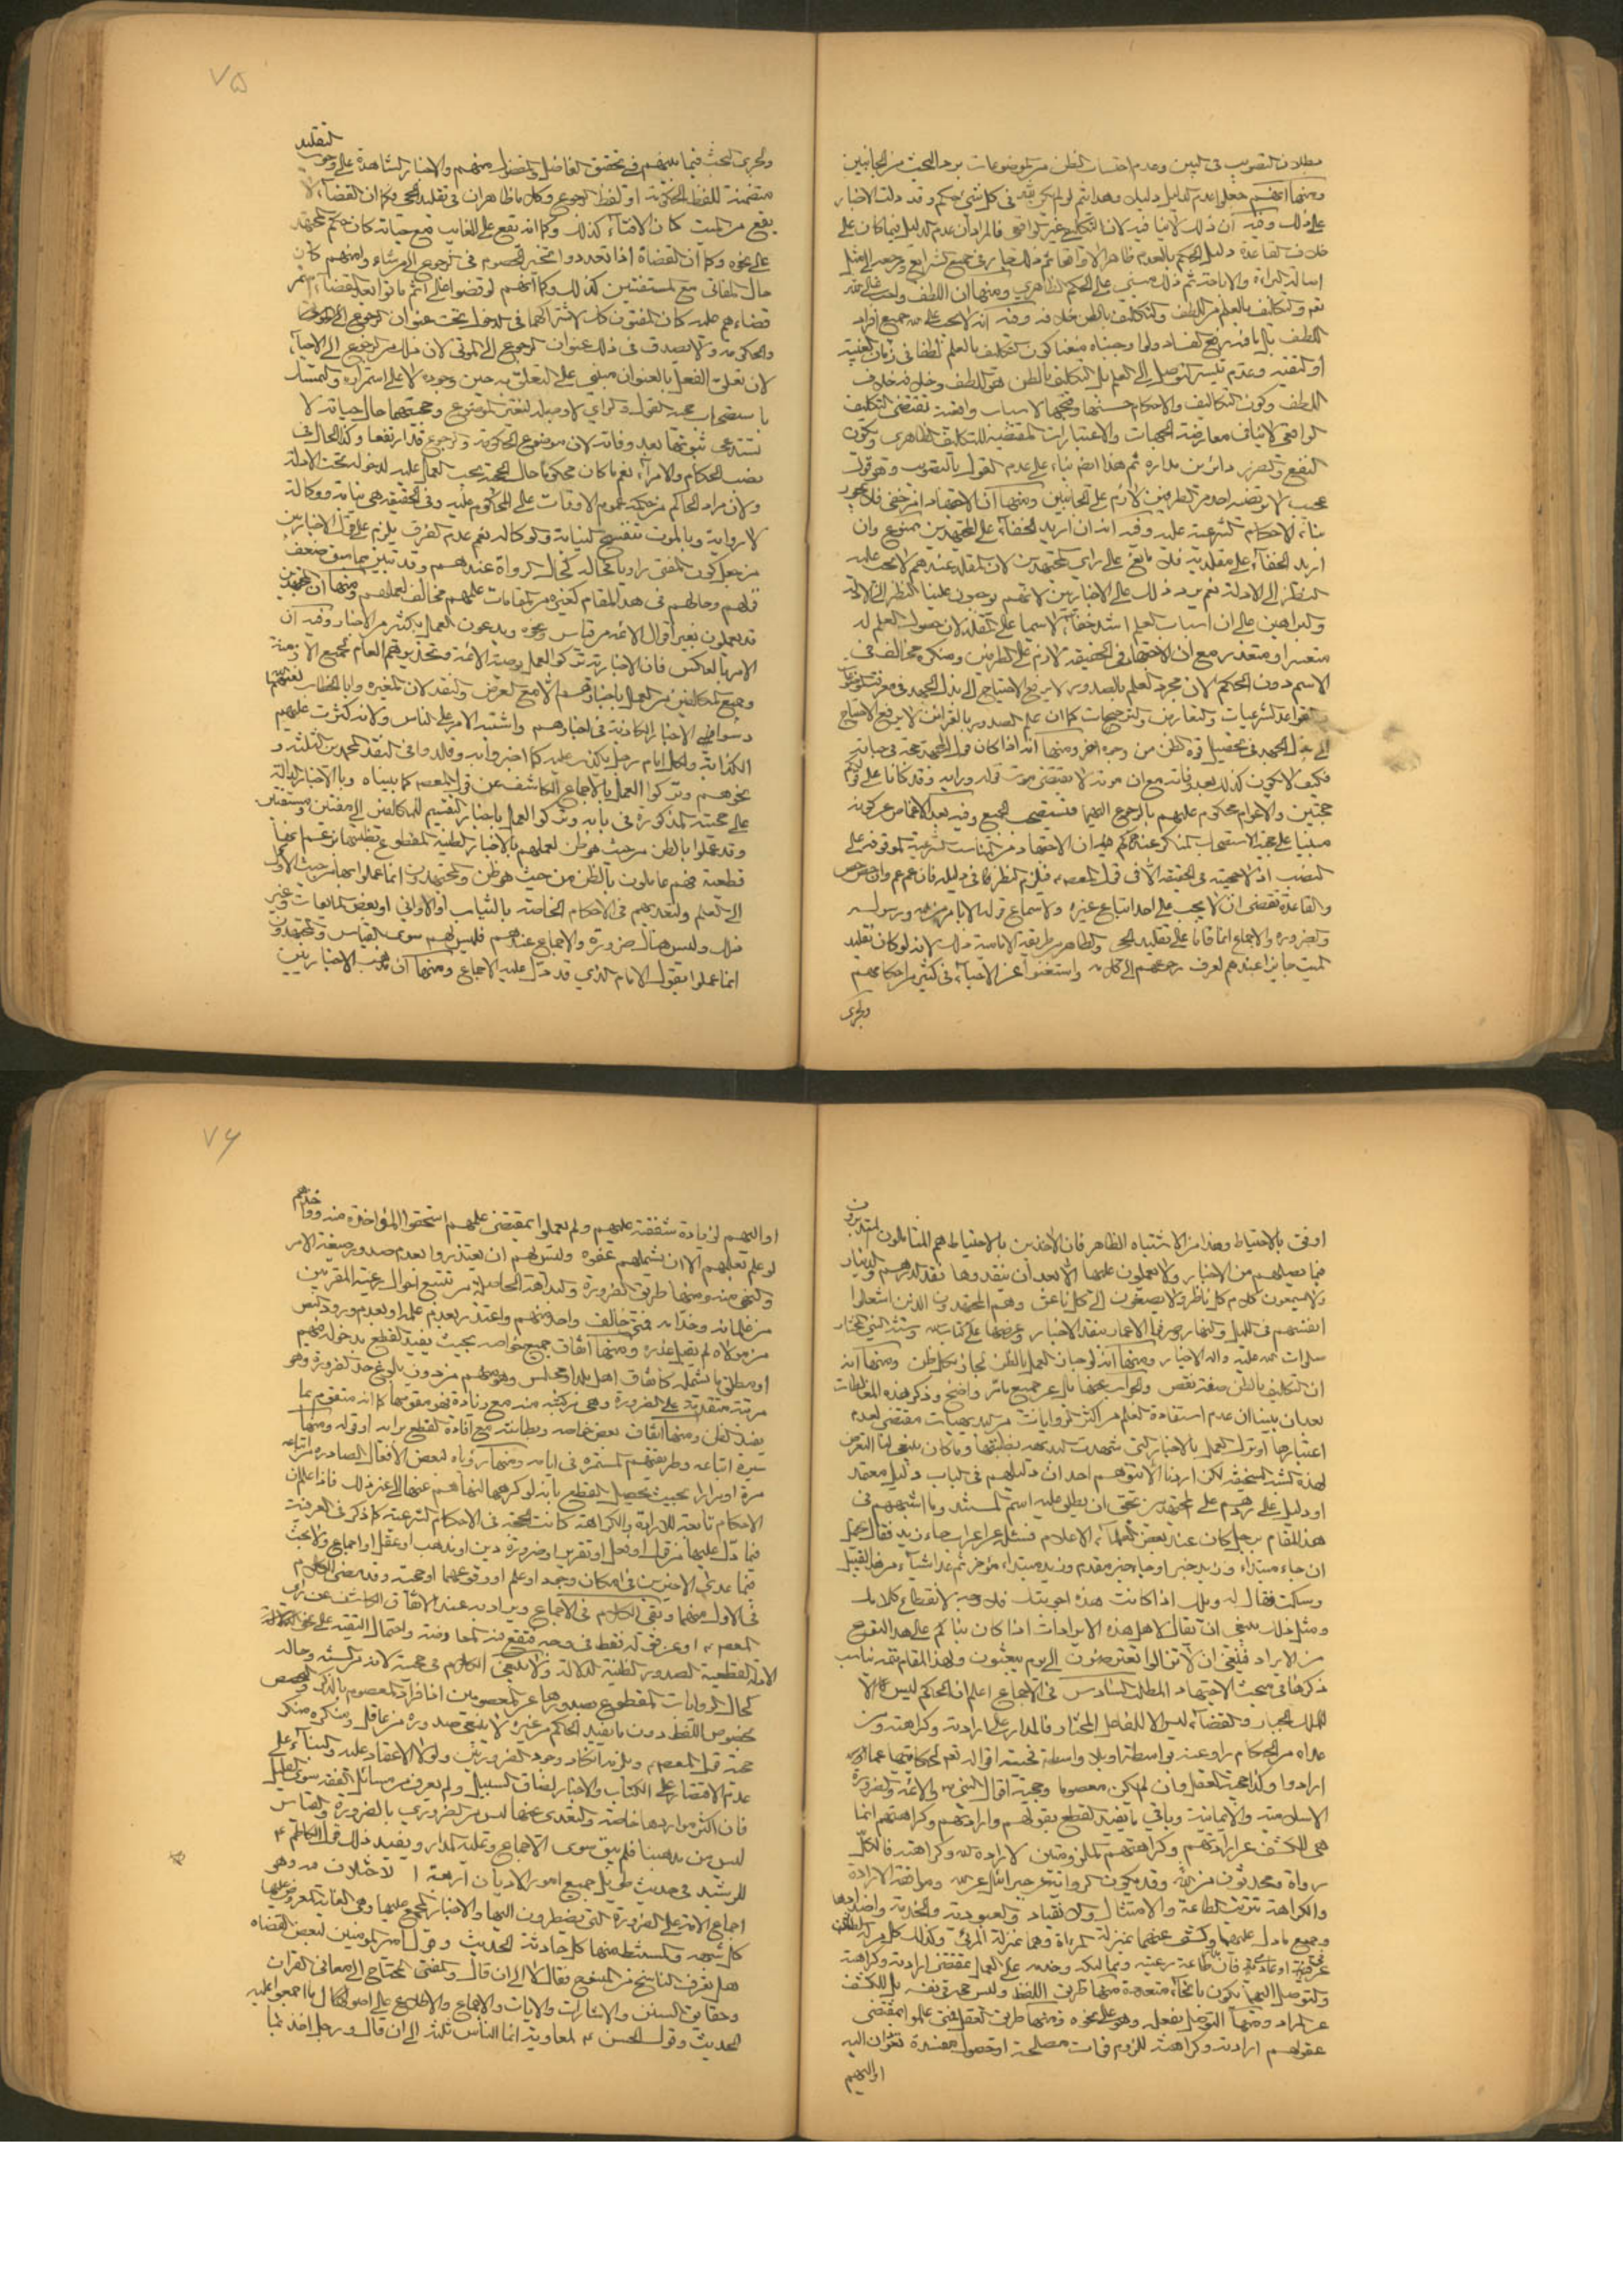 بطلان التصويب فى البين وعدم احتساب الظن من الموضوعات يرد البحث من الجانبين
ومنها انهم جعلوا عدم الدليل دليلا وهذا انما يتم لو لم يكن فى كل شئ حكم وقد دلت الاخبار
على ذلك وفيه ان ذلك لا ينافيه لان التكليف غير الواقعى فالمراد ان عدم الدليل فيما كان على
خلاف القاعدة دليل الحكم بالعدم ظاهرا لا واقعا ثم ذلك جار فى جميع الشرايع ومرجعه الى مثل
اصالة البراءة والاباحة ثم ذلك مبنى على الحكم الظاهري ومنها ان اللطف واجب عليه
تعم والتكليف بالعلم من اللطف والتكليف بالظن خلافه وفيه انه لا يجب عليه جميع افراد
اللطف بل ما فيه رفع الفساد ولو اوجبناه منعنا كون التكليف بالعلم لطفا فى زمان الغيبة
او التقية وعدم تيسر التوصل الى العلم بل التكليف بالظن هو اللطف وخلافه خلاف
اللطف وكون التكاليف والاحكام حسنها وقبحها لاسباب واقعية تقتضى التكليف
الواقعى لا ينافى معارضة الجهات والاعتبارات المقتضية للتكليف الظاهرى وتكون
النفع والضرر دائرين مداره ثم هذا ايضا بناء على عدم القول بالتصويب وهو قول
عجيب لا يرتضيه احد من الطرفين لازم على الجانبين ومنها ان الاجتهاد امر خفى فلا يجوز
بناء الاحكام الشرعية عليه وفيه انه ان اريد الخفاء على المجتهدين ممنوع وان
اريد الخفاء على مقلديه فلا مانع على راي المجتهدين لان المقلد عندهم لا يجب عليه
النظر الى الادلة نعم يرد ذلك على الاخباريين لانهم يوجبون علينا النظر الى الادلة
والبراهين على ان اسباب العلم اشد خفاء لا سيما على المقلد لان حصول العلم له
متعسر او متعذر مع ان الاجتهاد فى الحقيقة لازم على الطرفين ومنكره مخالف فى
الاسم دون الحكم لان مجرد العلم بالصدور لا يرفع الاحتياج الى بذل الجهد فى معرفة الموضوعات
والقواعد الشرعيات والتعارض والترجيحات كما ان علم الصدور بالقرائن لا يرفع الاحتياج
الى بذل الجهد فى تحصيل قوة الظن من وجه اخر ومنها انه اذا كان قول المجتهد حجة فى حياته
فكيف لا يكون كذلك بعد وفاته مع ان موته لا يقتضى موت قوله ورايه وقد كانا على قولكم
حجتين والاعوام محكوم عليهم بالرجوع اليهما فنستصحب الجميع وفيه بعد الاغماض عن كونه
مبنيا على حجية الاستصحاب المنكر عندكم ان الاجتهاد من المناصب الشرعية الموقوفة على
النصب اذ لا حجية فى الحقيقة الا فى قول المعصوم فيلزم النظر كما فى دليله فان عمم عم وان خصص خص
والقاعدة تقضى ان لا يجب على احد اتباع غيره ولا سماع قوله الا بامر من الله ورسوله
والضرورة والاجماع انما قاما على تقليد الحى والظاهر من طريقة الامامية ذلك لانه لو كان تقليد
الميت جايزا عندهم لعرف رجوعهم الى كل ميت واستغنوا عن الاحياء فى كثير من احكامهم
ولجرى
٧٥
ولجرى البحث فيما بينهم فى تحقق الفاضل والمفضول منهم والاخبار الشاهدة على وجوب التقليد
متضمنة للفظ الحكومة او لفظ الرجوع وكلاهما ظاهران فى تقليد الحى وكما ان القضاء لا
يقع من الميت كان الافتاء كذلك وكما انه يقع على الغايب مع حياته كان حكم المجتهد
على نحوه وكما ان القضاة اذا تعددوا تخير الخصوم فى الرجوع الى من شاء وا منهم كان
حال المفاتى مع المستفتين كذلك وكما انهم لو قضوا على انهم ماتوا بعد القضاء استمر
قضاءهم عليه كان المفتون كذلك لاشتراكهما فى الدخول تحت عنوان الرجوع الى الحى
والحكومة ولا يصدق فى ذلك عنوان الرجوع الى الموتى لان ذلك من الرجوع الى الاحياء
لان تعلق الفعل بالعنوان مبنى على التعلق به حين وجوده لا على استمراره والتمسك
باستصحاب حجية القول والراي لا وجه له لتغير الموضوع وحجيتهما حال حياته لا
تستدعى ثبوتها بعد وفاته لان موضوع الحكومة والرجوع قد ارتفعا وكذا الحال فى
نصب الحكام والامراء نعم ما كان محكوما حال الحجية يجب العمل عليه لدخوله تحت الادلة
ولان مراد الحاكم من حكمه عموم الاوقات على المحكوم عليه وفى الحقيقة هى نيابة ووكالة
لا رواية وبالموت تنفسخ النيابة والوكالة نعم عدم الفرق يلزم على قول الاخباريين
من جعل كون المفتى راويا فحاله كحال الرواة عندهم وقد تبين مما سبق ضعف
قولهم وحالهم فى هذا المقام كغيره من المقامات علمهم مخالف لعملهم ومنها ان المجتهدين
قد يعملون بغير اقوال الائمة من قياس ونحوه ويدعون العمل بكثير من الاخبار وفيه ان
الامر بالعكس فان الاخبارية تركوا العمل بوصية الائمة وتحذيرهم العام لجميع الازمنة
وجميع المكلفين من العمل باخبارهم الا مع العرض والنقد لان المغيرة وابا الخطاب لعنهما
دسوا فى الاخبار الكاذبة فى اخبارهم واشتبه الامر على الناس ولانه كثرت عليهم
الكذابة ولكل امام رجل يكذب عليه كما اخبروا به وقلدوا فى النقد المحمدين الثلثة و
نحوهم وتركوا العمل بالاجماع الكاشف عن قول المعصوم كما بيناه وبالاخبار الدالة
على حجيته المذكورة فى بابه وتركوا العمل باخبار التقسيم للمكلفين الى مفتين ومستفتين
وقد عملوا بالظن من حيث هو ظن لعملهم بالاخبار الظنية المقطوع بظنيتها بزعم انها
قطعية فهم عاملون بالظن من حيث هو ظن والمجتهدون انما عملوا بها من حيث الاول
الى العلم ولتعديهم فى الاحكام الخاصة بالثياب او الاواني او بعض المايعات وغير
ذلك وليس هناك ضرورة والاجماع عندهم فليس لهم سوى القياس والمجتهدون
انما عملوا بقول الامام الذي قد دل عليه الاجماع ومنها ان مذهب الاخباريين
٧٦
اوفق بالاحتياط وهذا من الاشتباه الظاهر فان الاخذين بالاحتياط هم المتاملون المتدبرون
فيما يصل اليهم من الاخبار ولا يعملون عليها الا بعد ان ينقدوها نقد الدرهم والدينار
ولا يسمعون كلام كل ناظر ولا يصغون الى كل ناعق وهم المجتهدون الذين اشغلوا
انفسهم فى الليل والنهار وصرفوا الاعمار بنقد الاخبار وعرضها على كتاب الله وسنة النبى المختار
صلوات الله عليه واله الاخيار ومنها انه لو جاز العمل بالظن لجاز بكل ظن ومنها انه
ان التكليف بالظن صفة نقص والجواب عنها بل عن جميع ما مر واضح وذكر هذه المغالطات
بعد ان بينا ان عدم استفادة العلم من اكثر الروايات من البديهيات مقتضى لعدم
اعتبارها او ترك العمل بالاخبار التى شهدت البديهة بظنيتها وما كان ينبغى لنا التعرض
لهذه الشبه السخيفة لكن اردنا الا يتوهم احد ان دليلهم فى الباب دليل معتمد
او دليل على ردهم على المجتهدين تحقق ان يطلق عليه اسم المستند وما اشبههم فى
هذا المقام برجل كان عند بعض العلماء الاعلام فسئل عن اعراب جاء زيد فقال يحتمل
ان جاء مبتداء وزيد خبر او جاء خبر مقدم وزيد مبتداء مؤخر ثم عد اشياء من هذا القبيل
وسكت فقال له ويلك اذا كانت هذه اجوبتك فلا وجه لانقطاع كلامك
ومثل ذلك ينبغى ان يقال لاهل هذه الايرادات اذا كان بناكم على هذا النهج
من الايراد فينبغى ان لا تزالوا تعترضون الى يوم يبعثون ولهذا المقام تتمة تناسب
ذكرها فى مبحث الاجتهاد المطلب السادس فى الاجماع اعلم ان الحاكم ليس الا
الملك الجبار والقضاء ليس الا للفاعل المختار فالمدار على ارادته وكراهته ومن
عداه من الحكام راو عنه بواسطة او بلا واسطة فحجية اقواله تعم لحكايتها عما
ارادوا وكذا حجية العقل وان لم يكن معصوما وحجية اقوال النبى ص والائمة والضرورة
الاسلامية والايمانية وباقى ما يفيد القطع بقولهم وارادتهم وكراهتهم انما
هى للكشف عن ارادتهم وكراهتهم الملزومتين لارادة الله وكراهته فالكل
رواة ومحدثون من الله وقد يكون الرواية عن جبرائيل عن الله وموافقة الارادة
والكراهة تثبت الطاعة والامتثال والانقياد والعبودية والخدمة واضدادها
وجميع ما دل عليهما وكشف عنهما بمنزلة المراة وهما بمنزلة المرئى وكذلك كل من له سلطان
عرفية او عادية فان طاعة رعيته ومماليكه وخدمه على العمل بمقتضى ارادته وكراهته
والتوصل اليها يكون بانحاء متعددة منها طريق اللفظ وليس حجة بنفسه بل للكشف
عن المراد ومنها التوصل بفعله وهو على نحوه ومنها طريق العقل فمتى علموا بمقتضى
عقولهم ارادته وكراهته للزوم فوات مصلحة او حصول مفسدة تعود ان اليه
او اليهم
او اليهم لزيادة شفقته عليهم ولم يعملوا بمقتضى علمهم استحقوا المؤاخذة منه ووأخذهم
لو علم تعليهم الا ان يشملهم عفوه وليس لهم ان يعتذروا بعدم صدور صيغة الامر
والنهى منه ومنها طريق الضرورة والبداهة الحاصلة من تتبع احوال رعيته المقربين
من غلمانه وخدامه فمتى خالف واحد منهم واعتذر بعدم علمه او بعدم ورود النص
من مولاه لم يقبل عذره ومنها اتفاق جميع خواصه بحيث يفيد القطع بدخوله فيهم
او مطلق ما يشمله كاتفاق اهل بلد او مجلس وهو منهم من دون بلوغ حد الضرورة وهو
مرتبة متقدمة على الضرورة وهى مركبة منه مع زيادة فهو مقومها كما انه متقوم بما
يفيد الظن ومنها اتفاق بعض خواصه وبطانته مع افادة القطع برايه او قوله ومنها
سيرة اتباعه وطريقتهم المستمرة فى ايامه ومنها رؤياه لبعض الافعال الصادرة من اتباعه
مرة او مرارا بحيث يحصل القطع بانه لو كرهها لنهاهم عنها الى غير ذلك فاذا علم ان
الاحكام تابعة للارادة والكراهة كانت الحجة فى الاحكام الشرعية كما ذكر فى العرفية
فيما دل عليها من قول او فعل او تقرير او ضرورة دين او مذهب او عقل او اجماع ولا بحث
فيما عدى الاخيرين فى امكان وجود او علم او وقوعهما او حجية وقد مضى الكلام
فى الاول منهما وبقى الكلام فى الاجماع ويراد به عندنا الاتفاق الكاشف عن راى
المعصوم او عن قوله فقط فى وجه فتقع فيه المعارضة واحتمال التقية على نحو الدلالة
الادلة القطعية الصدور الظنية الدلالة ولا ينبغى الكلام فى حجيته لانه من السنة وحاله
كحال الروايات المقطوع بصدورها عن المعصومين اذ افراد المعصوم بالذكر والمخصص
بخصوص اللفظ دون ما يفيد الحاكم من غيره لا ينبغى صدوره من عاقل ومنكره منكر
حجية قول المعصوم ويلزمه انكار وجود الضروريين ولولا الاعتماد عليه والبناء على
عدم الاقتصار على الكتاب والاخبار لضاق السبيل ولم يعرف من مسائل الفقه سوى القليل
فان اكثر مواردها خاصة والتعدى عنها ليس من الضروري بالضرورة والقياس
ليس من مذهبنا فلم يبق سوى الاجماع وعليه المدار ويفيد ذلك قول الكاظم ع
للرشيد فى حديث طويل جميع امور الاديان اربعة لا اختلاف فيه وهو
اجماع الامة على الضرورة التى يضطرون اليها والاخبار المجمع عليها وهى الغاية المعروض عليها
كل شبهة والمستنبط منها كل حادثة الحديث وقول امير المؤمنين لبعض القضاة
هل تعرف الناسخ من المنسوخ فقال لا الى ان قال والمفتى يحتاج الى معانى القران
وحقايق السنن والاشارات والايات والاجماع والاطلاع على اصول ما اجمعوا عليه
الحديث وقول الحسن ع لمعاوية انما الناس ثلثة الى ان قال ورجل اخذ بما